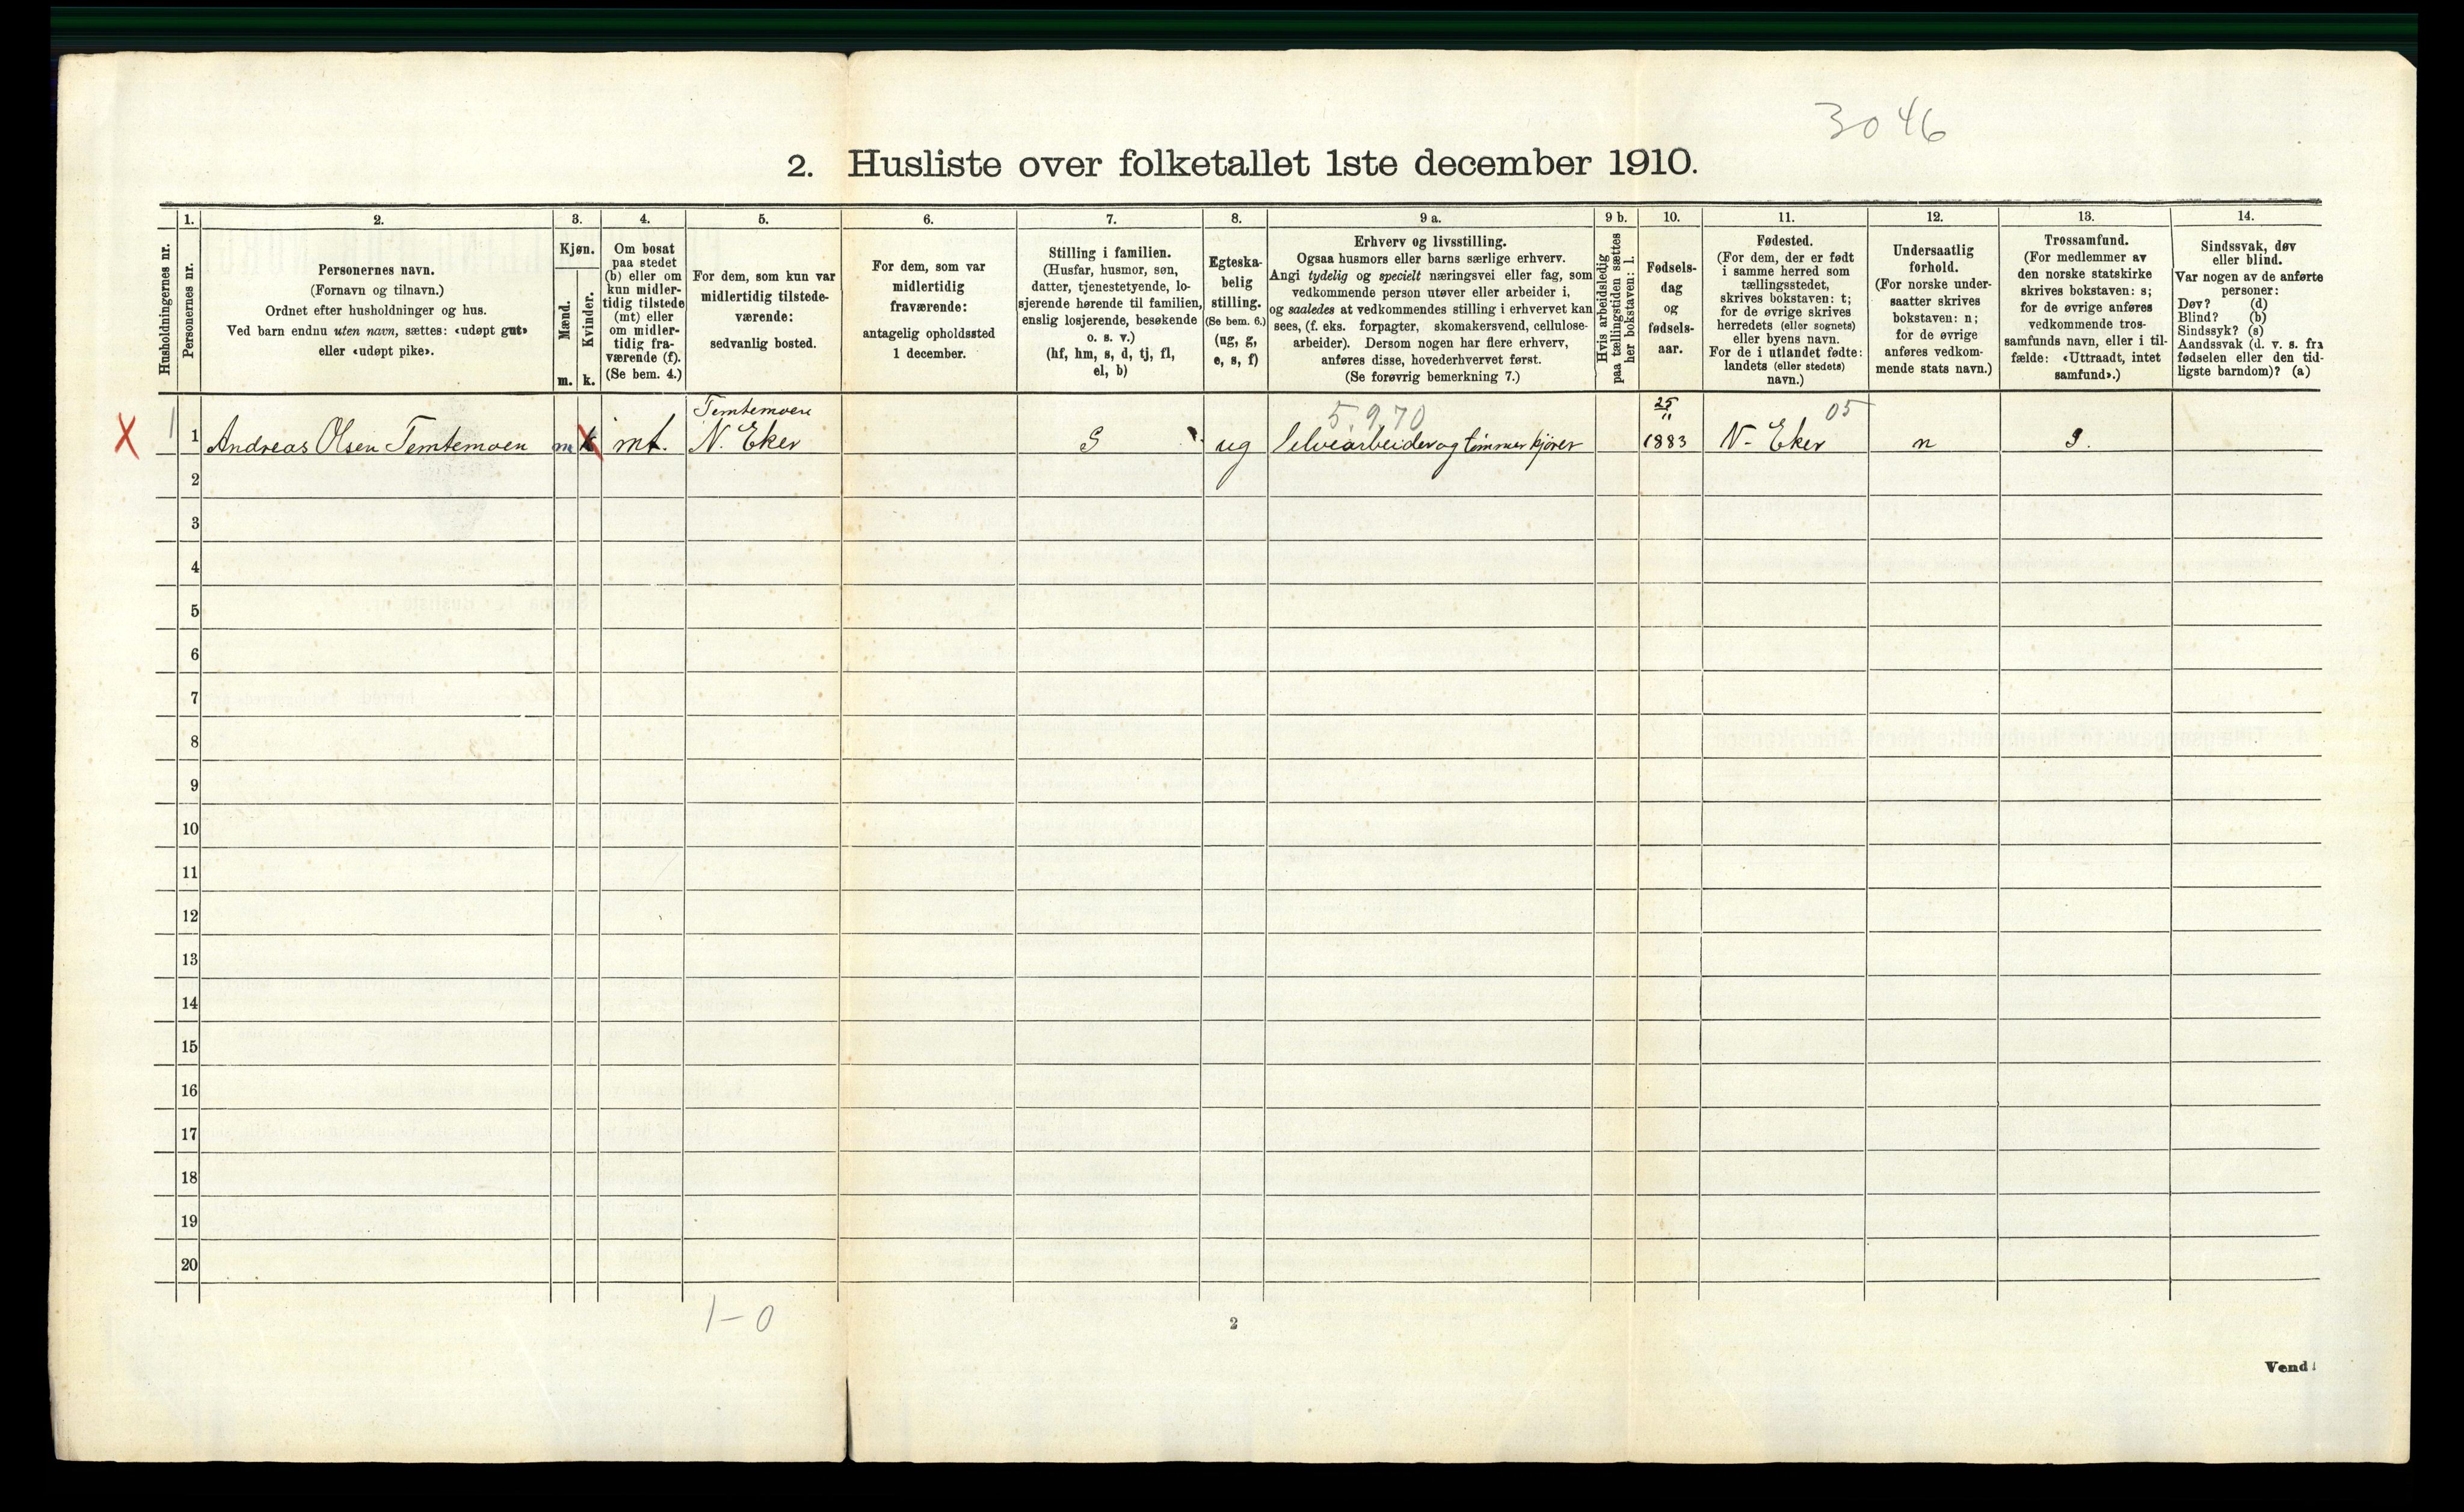 3046
2. Husliste over folketallet 1ste december 1910.
Husholdningernes nr.
1.
Personernes nr.
2.
Personernes navn.
(Fornavn og tilnavn.)
Ordnet efter husholdninger og hus.
Ved barn endnu uten navn, sættes: «udøpt gut»
eller «udøpt pike».
3.
Kjøn.
Mænd.
Kvinder.
m. k.
4.
Om bosat
paa stedet
(b) eller om
kun midler-
tidig tilstede
(mt) eller
om midler-
tidig fra-
værende (f).
(Se bem. 4.)
5.
For dem, som kun var
midlertidig tilstede-
værende:
sedvanlig bosted.
6.
For dem, som var
midlertidig
fraværende:
antagelig opholdssted
1 december.
7.
Stilling i familien.
(Husfar, husmor, søn,
datter, tjenestetyende, lo-
sjerende hørende til familien,
enslig losjerende, besøkende
o. s. v.)
(hf, hm, s, d, tj, fl,
el, b)
8.
Egteska-
belig
stilling.
(Se bem. 6.)
(ug, g,
e, s, f)
9 a.
Erhverv og livsstilling.
Ogsaa husmors eller barns særlige erhverv.
Angi tydelig og specielt næringsvei eller fag, som
vedkommende person utøver eller arbeider i,
og saaledes at vedkommendes stilling i erhvervet kan
sees, (f. eks. forpagter, skomakersvend, cellulose-
arbeider). Dersom nogen har flere erhverv,
anføres disse, hovederhvervet først.
(Se forøvrig bemerkning 7.)
9 b.
Hvis arbeidsledig
paa tællingstiden sættes
her bokstaven: l.
10.
Fødsels-
dag
og
fødsels-
aar.
11.
Fødested.
(For dem, der er født
i samme herred som
tællingsstedet,
skrives bokstaven: t;
for de øvrige skrives
herredets (eller sognets)
eller byens navn.
For de i utlandet fødte:
landets (eller stedets)
navn.)
12.
Undersaatlig
forhold.
(For norske under-
saatter skrives
bokstaven: n;
for de øvrige
anføres vedkom-
mende stats navn.)
13.
Trossamfund.
(For medlemmer av
den norske statskirke
skrives bokstaven: s;
for de øvrige anføres
vedkommende tros-
samfunds navn, eller i til-
fælde: «Uttraadt, intet
samfund».)
14.
Sindssvak, døv
eller blind.
Var nogen av de anførte
personer:
Døv? (d)
Blind? (b)
Sindssyk? (s)
Aandssvak (d. v. s. fra
fødselen eller den tid-
ligste barndom)? (a)
Temtemoen 5.970 25/11 05
X 1 1 Andreas Olsen Temtemoen m k mt. N. Eker S ug Selvearbeider og tømmerkjører 1883 N- Eker n S.
2
3
4
5
6
7
8
9
10
11
12
13
14
15
16
17
18
19
20
1-0
2
Vend!